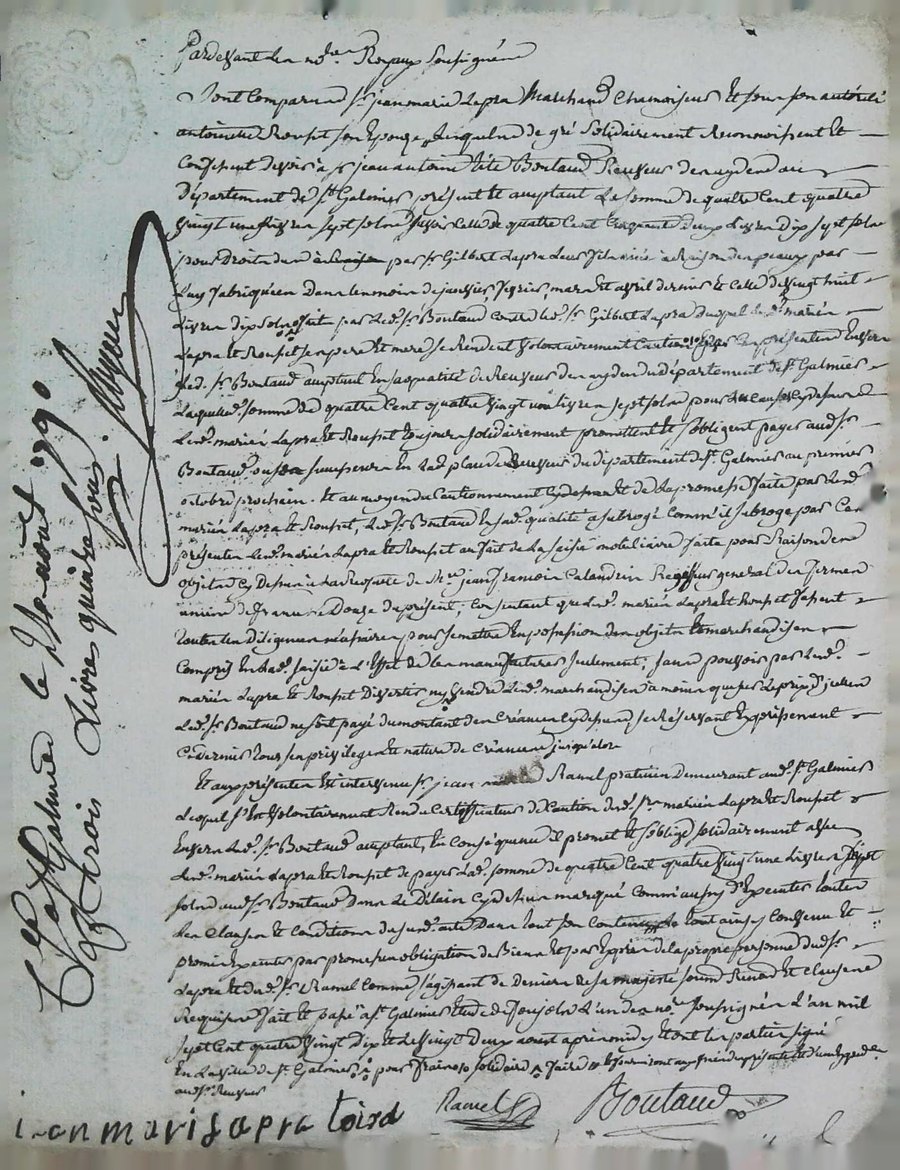 Pardevant les nores Royaux soussignés
Sont comparus sr jean marie Lapra Marchand chamoiseur Et sous son autorité
antoinette Roufet son Epouze, Lesquels de gré solidairement Reconnoissent Et
Confessent devoir à sr jean antoine tité Boutaud Receveur des aydes au
Département de st Galmier présent Et acceptant La somme de quatre Cent quatre
vingt une livres sept sols savoir Celle de quatre Cent Cinquante deux Livres dix sept sols
pour Droits dus par sr Gilbert Lapra Leur fils à Raison des peaux par
Luy fabriquées Dans Les mois de janvier, fevrier, mars Et avril derniers et Celle de vingt huit
Livres dix sols par Led. sr Boutaud contre led. sr Gilbert Lapra duquel les d. mariés
Lapra Et Roufet ses pere Et mere se Rendent volontairement Cautions Envers
Led. sr Boutaud acceptant En sa qualité de Receveur des aydes du département de st Galmier
Laquelle somme de quatre Cent quatre vingt une livres sept sols pour Les causes cy dessus
Les d. mariés Lapra Et Roufet toujours solidairement promettent Et s'obligent payer aud. sr
Boutaud ou à son successeur En Lad. place de Receveur du département de st Galmier au premier
octobre prochain. Et au moyen du Cautionnement cy dessus Et de La promesse faite par Les d.
mariés Lapra Et Roufet, Led. sr Boutaud En sa d. qualité a subrogé comme il subroge par Ces
présentes Les d. mariés Lapra Et Roufet au fait de La saisie mobiliaire faite pour Raison des
objets cy dessus à La Requete de Me jean françois Calandrin Regisseur general des fermes
unies de france; Consentant que Les d. mariés Lapra Et Roufet fassent
toutes les diligences nécessaires pour se mettre En possession des objets Et marchandises
Compris En Lad. saisie à L'Effet de les manufacturer seulement; sans pouvoir par Les d.
mariés Lapra Et Roufet Divertir ny vendre Les d. marchandises à moins que par Le prix d'icelles
Led. sr Boutaud ne soit payé du montant des Créances cy dessus, se Réservant Expressement
Ce dernier tous ses privileges Et nature de Créances jusqu'alors
Et aux présentes Est intervenu sr jean Ramel praticien Demeurant aud. st Galmier
Lequel s'Est volontairement Rendu Certificateur de Caution des d. srs mariés Lapra Et Roufet
Envers Led. sr Boutaud acceptant, En Conséquence il promet Et s'oblige solidairement avec
Les d. mariés Lapra Et Roufet de payer Lad. somme de quatre Cent quatre vingt une Livres sept
sols aud. sr Boutaud Dans Le Délai cy dessus marqué comme aussy d'Executer toutes
Les Clauses Et conditions dudit acte Dans tout son Contenu tout ainsy Convenu Et
promis Executer par promesse obligation de Biens Et par Exprès de La propre personne dud. sr
Lapra Et dud. sr Ramel Comme s'agissant de Deniers de sa majesté soumis Renon Et clauses
Requises fait et passé a st Galmier Etude de Poujols L'un des nores soussignés L'an mil
sept Cent quatre vingt Dix Et Le vingt Deux aoust après midy Et ont les parties signé
En La ville de st Galmier
aud. sr Receveur
jean marie Lapra Ramel Boutaud
Cté a st Galmier le août 1790
Rt trois Livres quinze sous